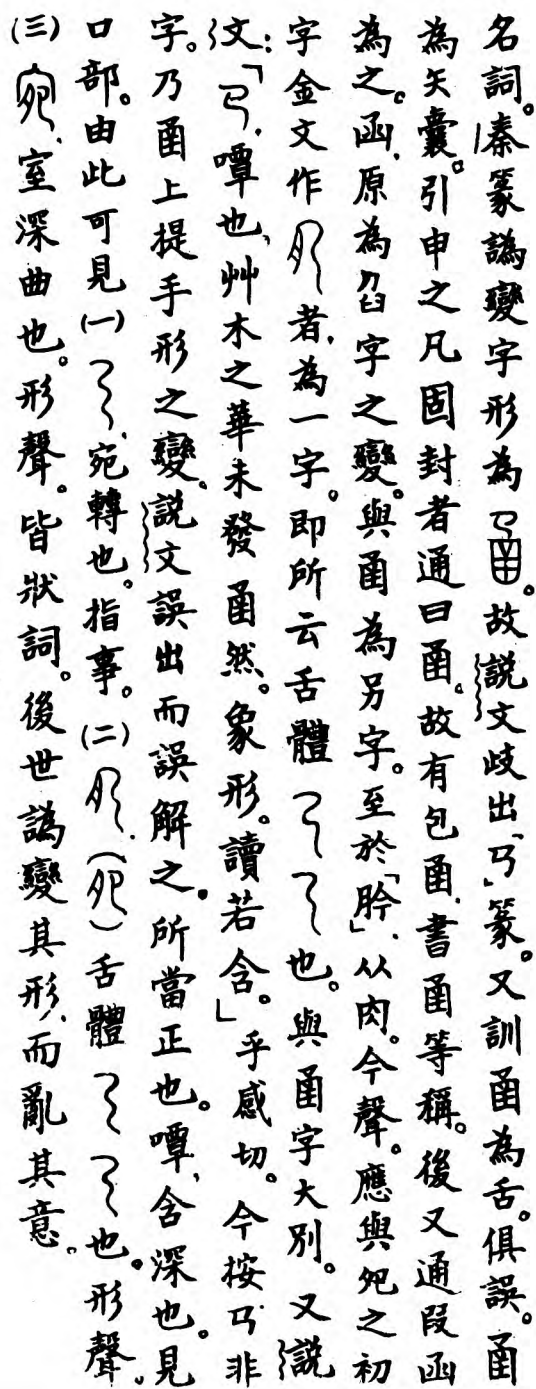 名詞。秦篆譌變字形為。故說文歧出「㔾」篆。又訓圅為舌。俱誤。圅
為矢囊。引申之凡固封者通曰圅。故有包圅、書圅等稱。後又通叚函
為之。函、原為臽字之變。與圅為另字。至於「肣」、从肉。今聲。應與夗之初
字金文作者、為一字。即所云舌體也。與圅字大別。又說
文：「㔾、嘾也、艸木之華未發圅然。象形。讀若含。」乎感切。今按㔾非
字。乃圅上提手形之變。說文誤出而誤解之。所當正也。嘾、含深也。見
口部。由此可見(一)、宛轉也。指事。(二)、()舌體也。形聲。
(三)宛、室深曲也。形聲。皆狀詞。後世譌變其形、而亂其意。